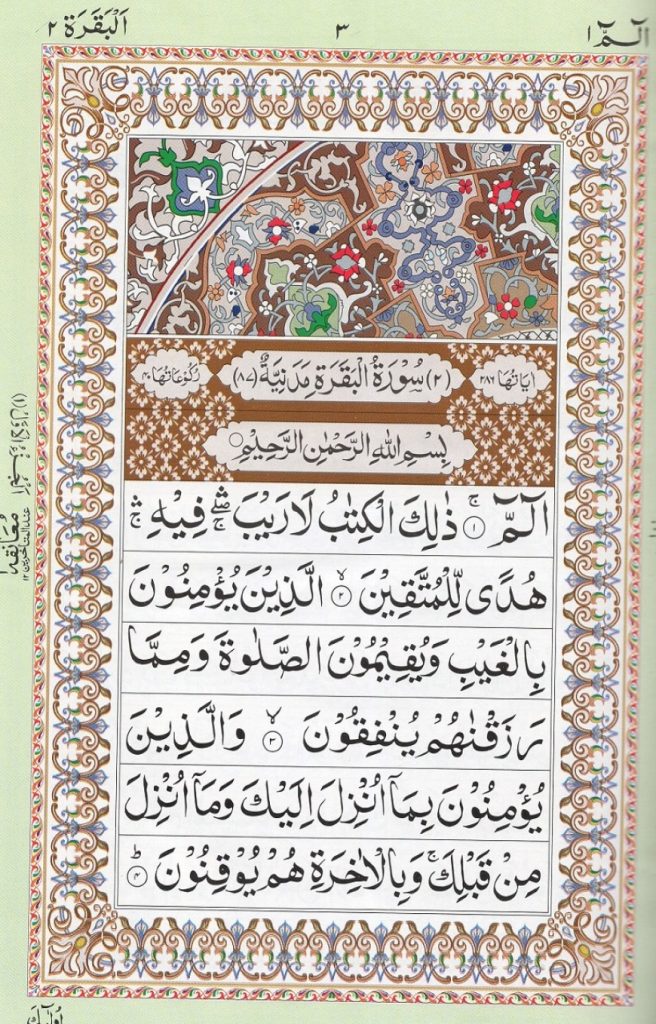 الٓمّٓ ١
٣
اَلْبَقَرَة ٢
اٰيَاتُهَا ٢٨٦
(٢) سُوْرَةُ الْبَقَرَةِ مَدَنِيَّةٌ (٨٧)
رُكُوْعَاتُهَا ٤٠
بِسْمِ اللّٰهِ الرَّحْمٰنِ الرَّحِيْمِ
الٓمّٓ ۚ ١ ذٰلِكَ الْكِتٰبُ لَا رَيْبَ ۛۖ فِيْهِ ۛۚ
هُدًى لِّلْمُتَّقِيْنَ ۙ ٢ الَّذِيْنَ يُؤْمِنُوْنَ
بِالْغَيْبِ وَيُقِيْمُوْنَ الصَّلٰوةَ وَمِمَّا
رَزَقْنٰهُمْ يُنْفِقُوْنَ ۙ ٣ وَالَّذِيْنَ
يُؤْمِنُوْنَ بِمَاۤ اُنْزِلَ اِلَيْكَ وَمَاۤ اُنْزِلَ
مِنْ قَبْلِكَ ۚ وَبِالْاٰخِرَةِ هُمْ يُوْقِنُوْنَ ؕ ٤
معانقة
عند المتاخرين ١٢
اُولٰٓئِكَ